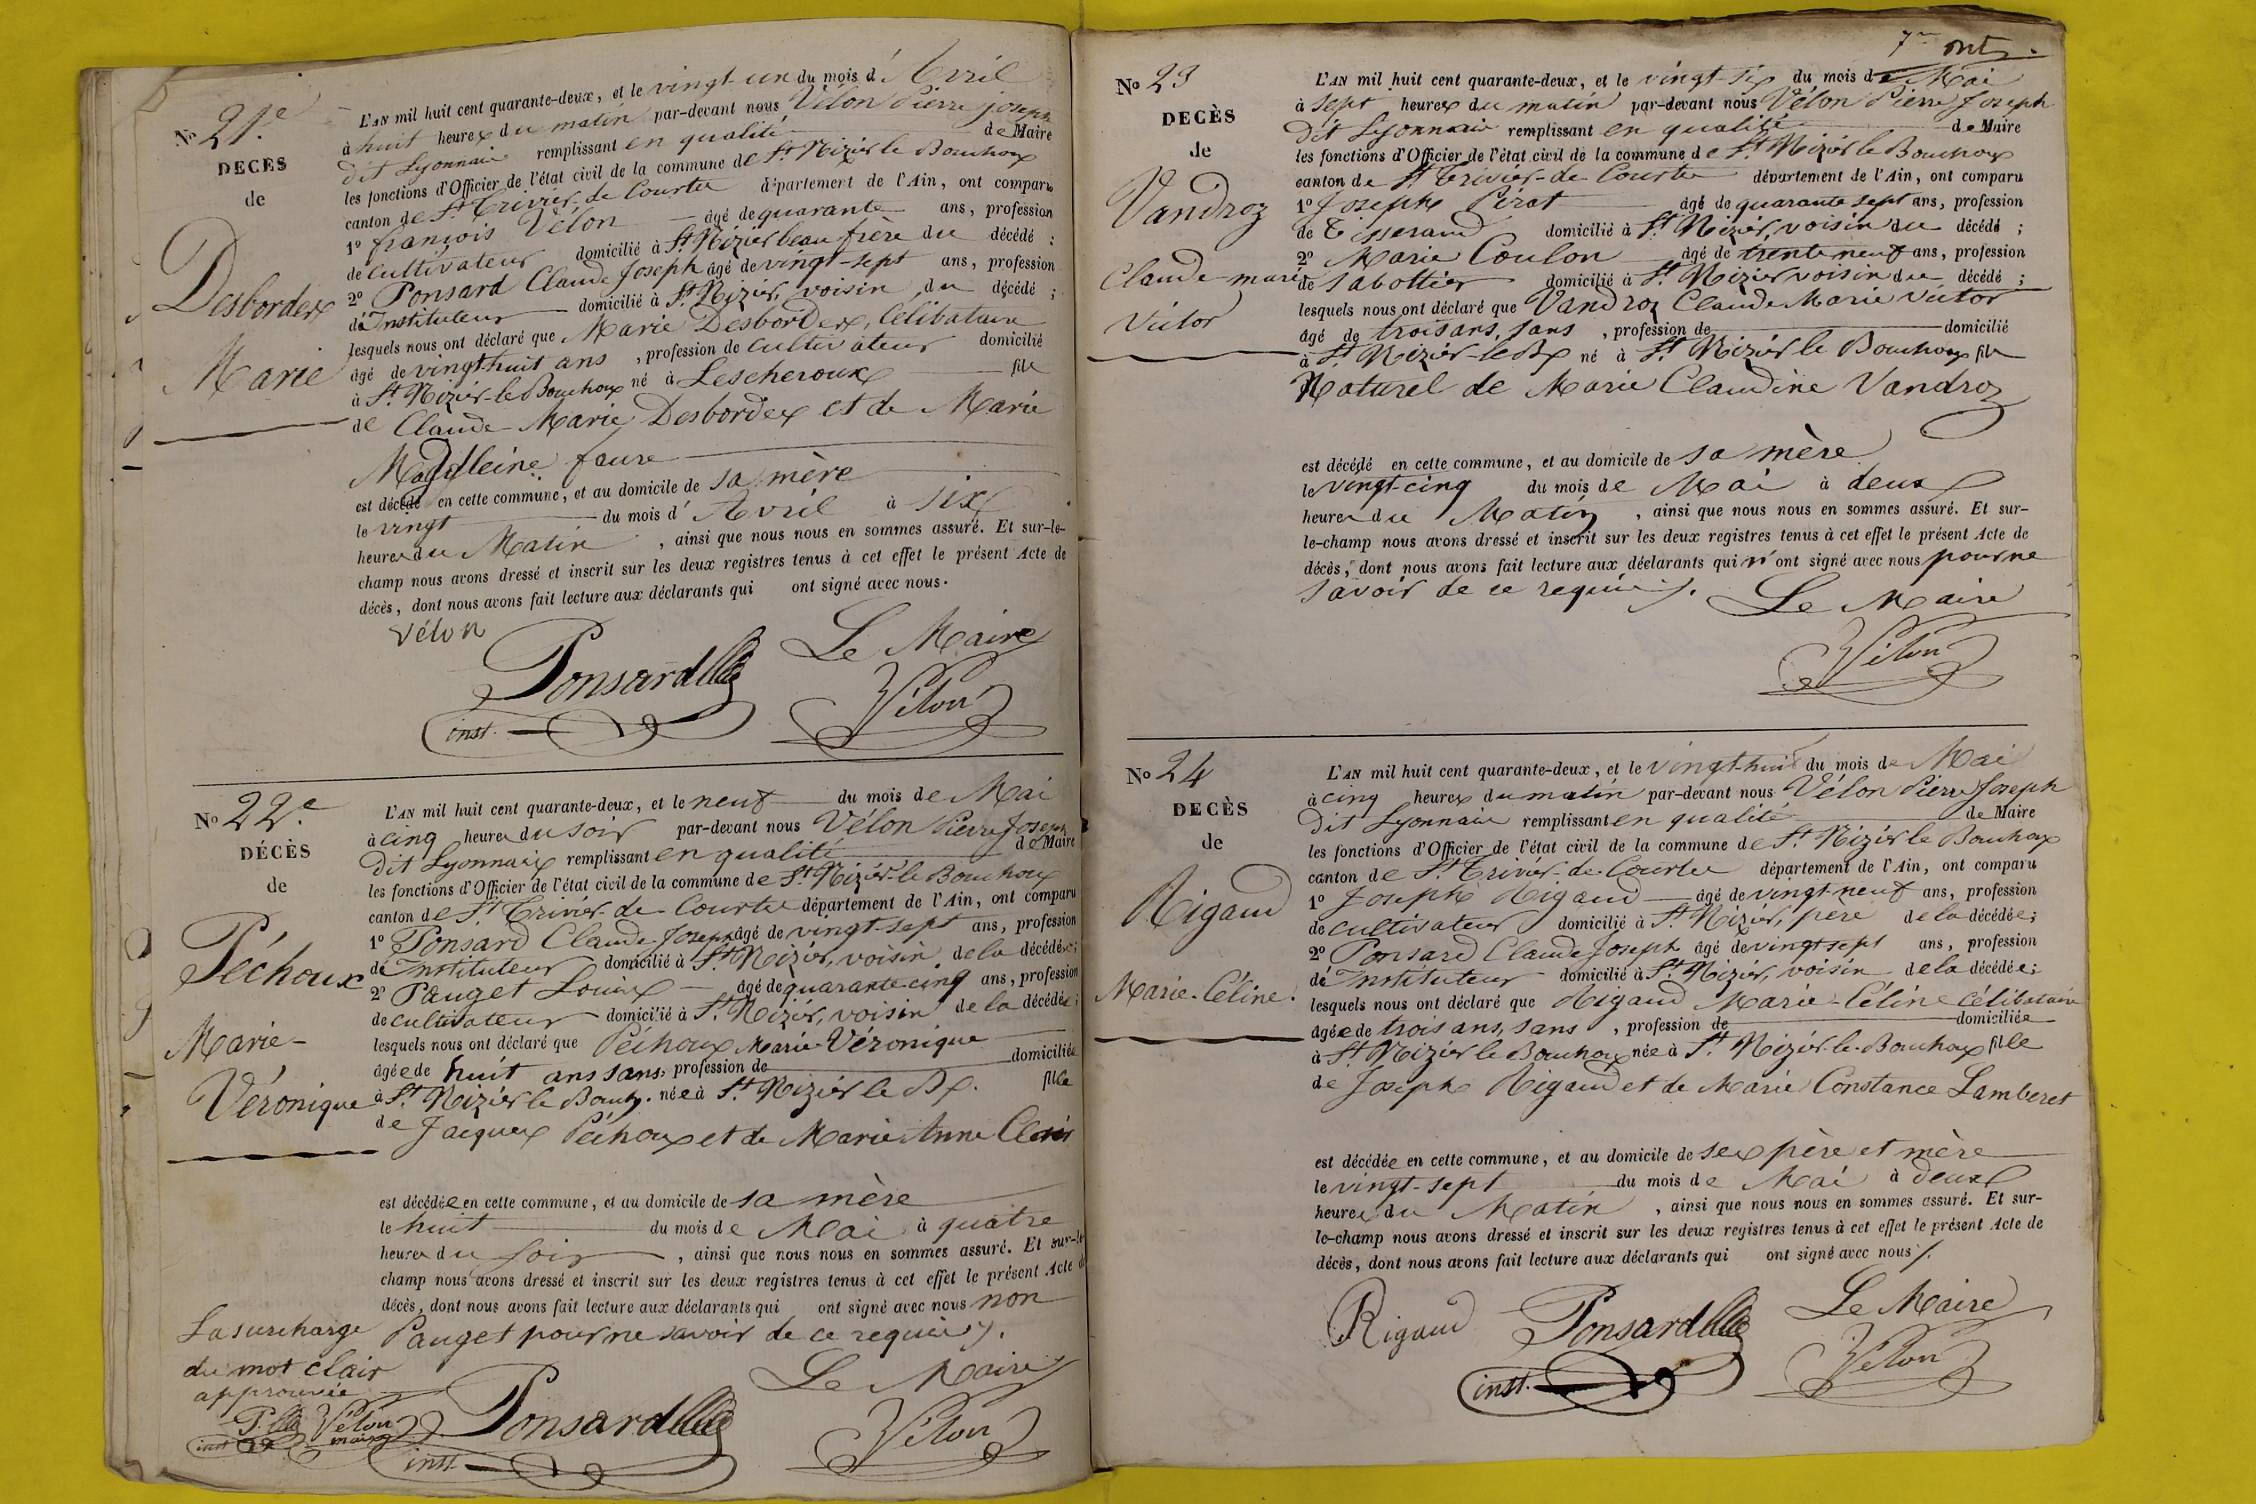 No 21.e
DECÈS
de
Desbordex
Marie
L'AN mil huit cent quarante-deux, et le vingt un du mois d'Avril
à huit heurex du matin par-devant nous Vélon Pierre joseph
dit Lyonnaix remplissant en qualité de Maire
les fonctions d'Officier de l'état civil de la commune de St Nizier le Bouchoux
canton de St Trivier-de-Courtex département de l'Ain, ont comparu
1o françois Vélon âgé de quarante ans, profession
de cultivateur domicilié à St Nizier beau frère du décédé ;
2o Ponsard Claude Joseph âgé de vingt-sept ans, profession
dé Instituteur domicilié à St Nizier, voisin du décédé ;
lesquels nous ont déclaré que Marie Desbordex, Célibataire
âgé de vingt huit ans , profession de cultivateur domicilié
à St Nizier-le-Bouchoux né à Lescheroux fils
de Claude Marie Desbordex et de Marie
Magdleine faure
est décédé en cette commune, et au domicile de sa mère
le vingt du mois d'Avril à six
heurex du Matin , ainsi que nous nous en sommes assuré. Et sur-le-
champ nous avons dressé et inscrit sur les deux registres tenus à cet effet le présent Acte de
décès, dont nous avons fait lecture aux déclarants qui ont signé avec nous.
Vélon
Ponsard
inst.
Le Maire
Vélon
No 22.e
DÉCÈS
de
Péchoux
Marie-
Véronique
L'AN mil huit cent quarante-deux, et le neuf du mois de Mai
à cinq heurex du soir par-devant nous Vélon Pierre Joseph
dit Lyonnaix remplissant en qualité de Maire
les fonctions d'Officier de l'état civil de la commune de St Nizier-le Bouchoux
canton de St Trivier-de-Courtex département de l'Ain, ont comparu
1o Ponsard Claude Joseph âgé de vingt-sept ans, profession
dé Instituteur domicilié à St Nizier, voisin de la décédée ;
2o Pauget Louix âgé de quarante cinq ans, profession
de cultivateur domicilié à St Nizier, voisin de la décédée ;
lesquels nous ont déclaré que Péchoux Marie-Véronique
âgée de huit ans sans, profession de domiciliée
à St Nizier le Boux. née à St Nizier le Bx. fille
de Jacquex Péchoux et de Marie Anne Clair
est décédée en cette commune, et au domicile de sa mère
le huit du mois de Mai à quatre
heurex du soir , ainsi que nous nous en sommes assuré. Et sur-le-
champ nous avons dressé et inscrit sur les deux registres tenus à cet effet le présent Acte de
décès, dont nous avons fait lecture aux déclarants qui ont signé avec nous non
Pauget pour ne savoir de ce requis.
La surcharge
du mot clair
approuvée
Vélon
maire
inst
Ponsard
inst.
Le Maire
Vélon
7me
No 23
DECÈS
de
Vandroz
Claude-marie
Victor
L'AN mil huit cent quarante-deux, et le vingt six du mois de Mai
à sept heurex du matin par-devant nous Vélon Pierre Joseph
dit Lyonnaix remplissant en qualité de Maire
les fonctions d'Officier de l'état civil de la commune de St Nizier le Bouchoux
canton de St Trivier-de-Courtex département de l'Ain, ont comparu
1o Joseph Pirat âgé de quarante sept ans, profession
de Tisserand domicilié à St Nizier, voisin du décédé ;
2o Marie Coulon âgé de trente neuf ans, profession
de sabottier domicilié à St Nizier voisin du décédé ;
lesquels nous ont déclaré que Vandroz Claude Marie Victor
âgé de trois ans, sans , profession de domicilié
à St Nizier-le Bx né à St Nizier le Bouchoux fils
Naturel de Marie Claudine Vandroz
est décédé en cette commune, et au domicile de sa mère
le vingt-cinq du mois de Mai à deux
heurex du Matin , ainsi que nous nous en sommes assuré. Et sur-
le-champ nous avons dressé et inscrit sur les deux registres tenus à cet effet le présent Acte de
décès, dont nous avons fait lecture aux déclarants qui n'ont signé avec nous pour ne
savoir de ce requis.
Le Maire
Vélon
No 24
DECÈS
de
Rigaud
Marie-Céline.
L'AN mil huit cent quarante-deux, et le vingt-huit du mois de Mai
à cinq heurex du matin par-devant nous Vélon Pierre Joseph
dit Lyonnaix remplissant en qualité de Maire
les fonctions d'Officier de l'état civil de la commune de St Nizier le Bouchoux
canton de St Trivier-de-Courtex département de l'Ain, ont comparu
1o Joseph Rigaud âgé de vingt-neuf ans, profession
de cultivateur domicilié à St Nizier, père de la décédée ;
2o Ponsard Claude Joseph âgé de vingt sept ans, profession
dé Instituteur domicilié à St Nizier, voisin de la décédée ;
lesquels nous ont déclaré que Rigaud Marie-Céline célibataire
âgée de trois ans, sans , profession de domiciliée
à St Nizier le Bouchoux née à St Nizier-le-Bouchoux fille
de Joseph Rigaud et de Marie Constance Lamberet
est décédée en cette commune, et au domicile de sex père et mère
le vingt-sept du mois de Mai à deux
heurex du Matin , ainsi que nous nous en sommes assuré. Et sur-
le-champ nous avons dressé et inscrit sur les deux registres tenus à cet effet le présent Acte de
décès, dont nous avons fait lecture aux déclarants qui ont signé avec nous.
Rigaud
Ponsard
inst.
Le Maire
Vélon